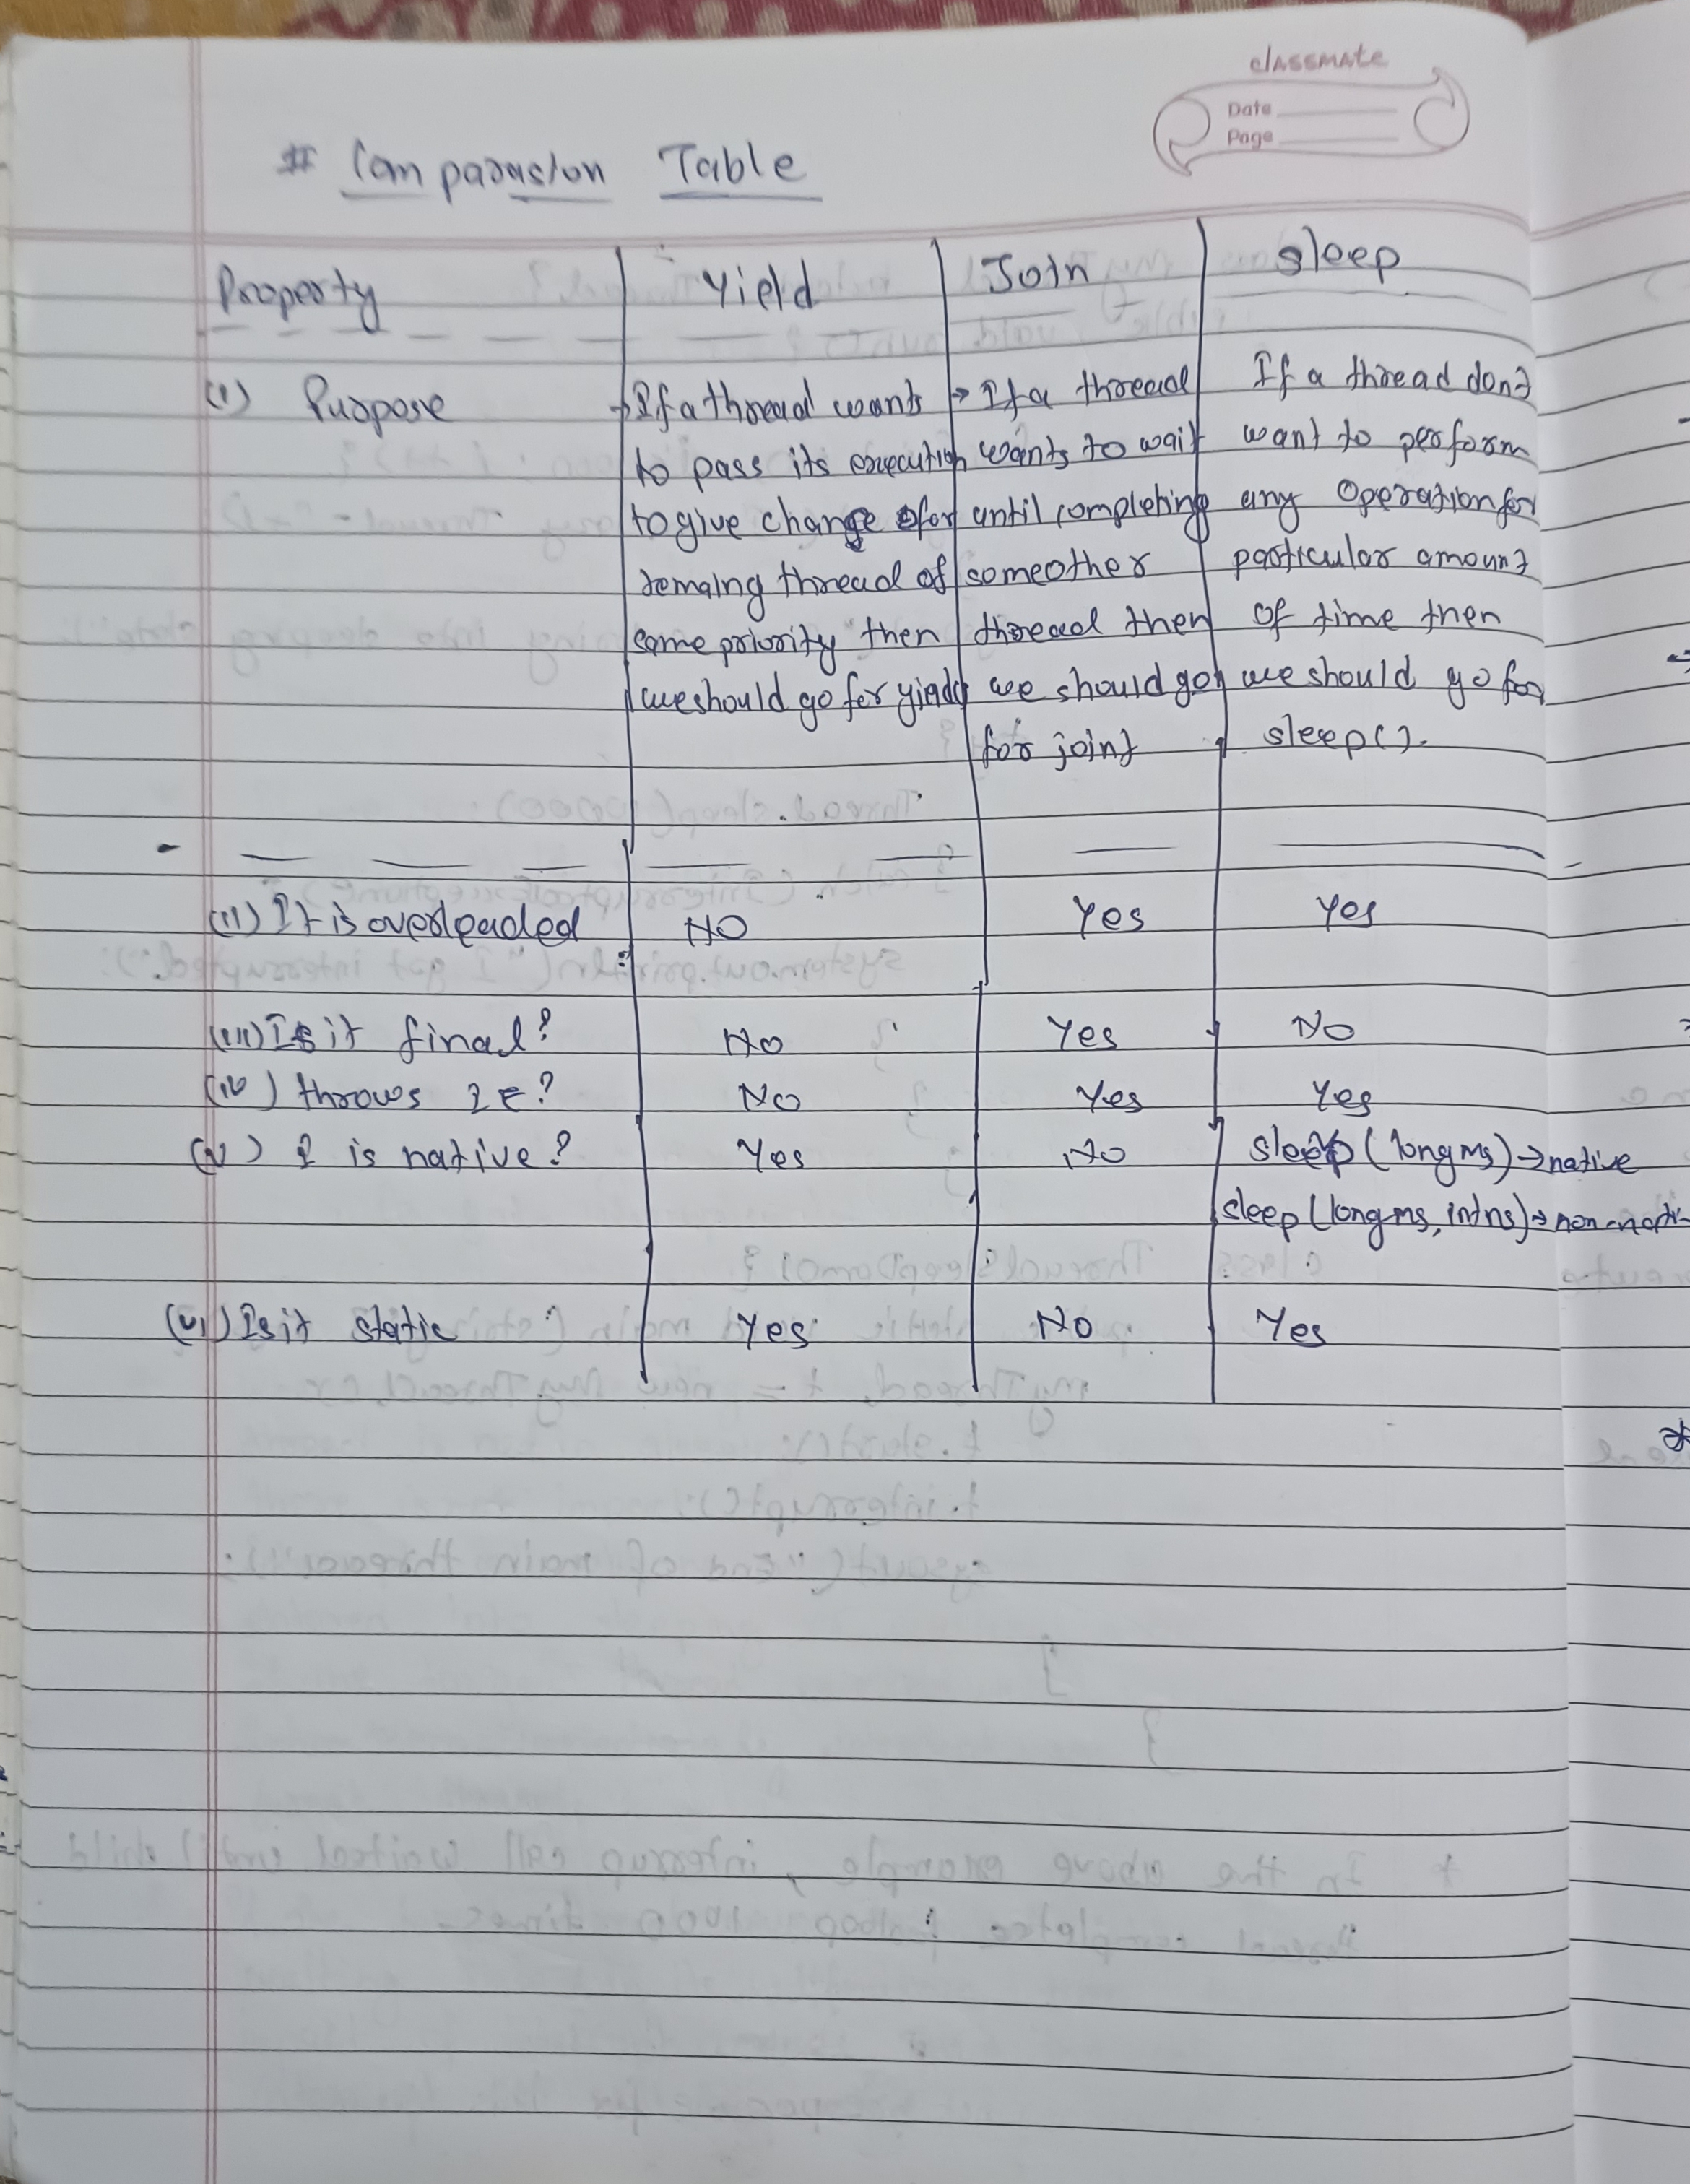 classmate
Date
Page
# Comparasion Table
Property Yield Join sleep
(i) Purpose
→ If a thread wants
to pass its execution
to give change for
remaing thread of
same priority then
we should go for
→ If a thread
wants to wait
until completing
someother
thread then
we should go
for join
If a thread dont
want to perform
any operation for
particular amount
of time then
we should go for
sleep().
(ii) It is overloaded NO Yes Yes
(iii) Is it final? No Yes No
(iv) throws IE? No Yes Yes
(v) I is native? Yes No sleep(long ms)→native
sleep(long ms, int ns)→
(vi) Is it static Yes No Yes